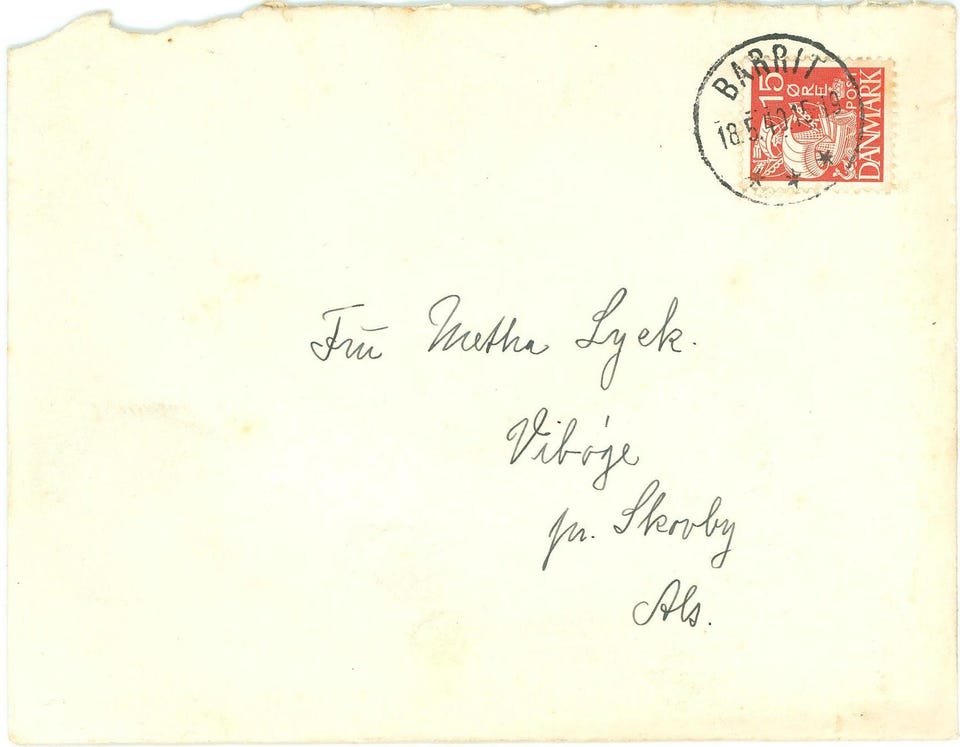 BARRIT
18.5.40 15-19
15
ØRE
POST
DANMARK
Frū Metha Lyck.
Vibøge
pr. Skovby
Als.